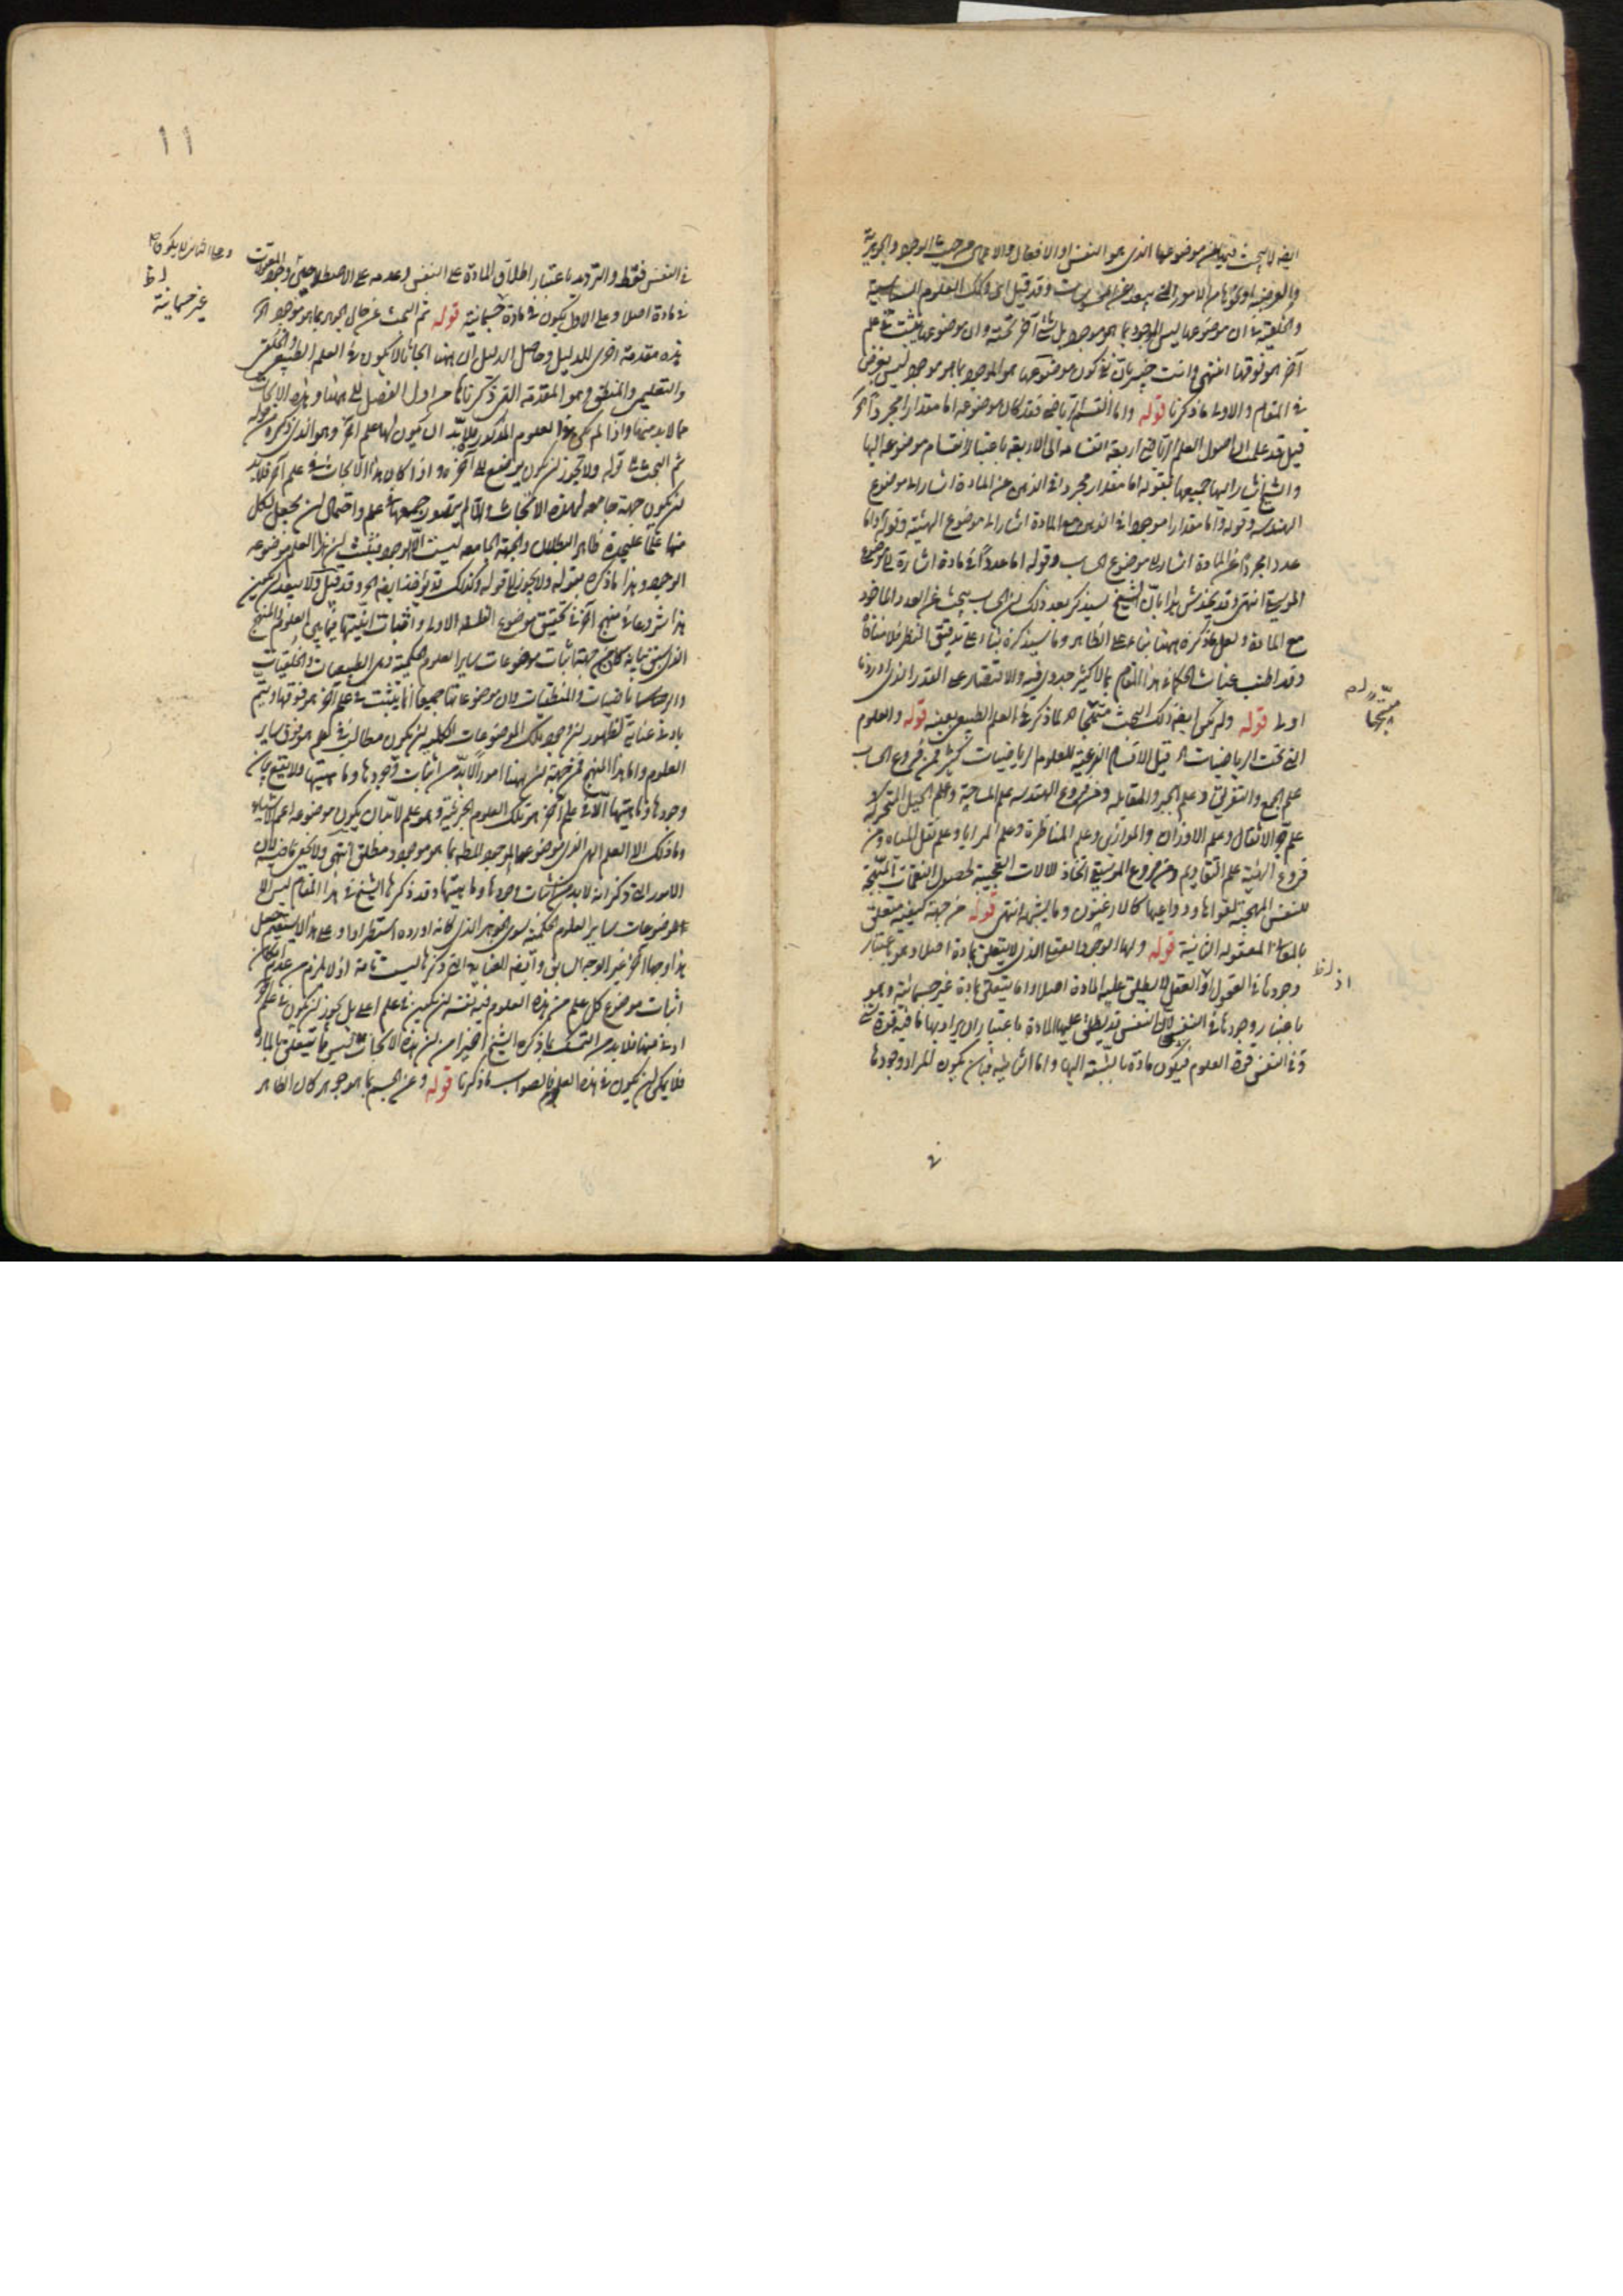 ايضا لا يبحث فيها عن موضوعها الذي هو النفس او الافعال والاعمال من حيث الوجود والجوهرية
والعرضية او نحوهما من الامور التي وقد قيل ان وكذلك العلوم السياسية
والخلقية في ان موضوعها ليس الموجود بما هو موجود بل شيء آخر تحته وان موضوعها يثبت في علم
آخر هو فوقها انتهى وانت خبير بان كون موضوعها هو الموجود بما هو موجود ليس بغرض
في المقام والاولى ما ذكرنا قوله واما التعليم الرياضي فقد كان موضوعه اما مقدارا مجردا آخر
قيل قد علمت ان اصول العلم الرياضي اربعة انقسامه الى الاربعة باعتبار انقسام موضوعه اليها
والشيخ اشار اليها جميعها بقوله اما مقدار مجردا في الذهن عن المادة اشار الى موضوع
الهندسة وقوله واما مقدارا موجودا في الذهن مع المادة اشار الى موضوع الهيئة وقوله واما
عددا مجردا عن المادة اشار الى موضوع الحساب وقوله اما عددا في مادة اشارة الى موضوع
الموسيقى انتهى وقد يخدش هذا بان الشيخ سيذكر بعد ذلك ان الحساب يبحث عن العدد الماخوذ
مع المادة ولعل ما ذكره ههنا بناء على الظاهر وما سيذكره بناء على تدقيق النظر فلا منافاة
وقد اطنب غياث الحكماء في هذا المقام بما لا كثير جدوى فيه والاقتصار على القدر الذي اوردنا
اولى قوله ولم يكن ايضا ذلك البحث متجها لما ذكر في العلم الطبيعي بعينه قوله والعلوم
التي تحت الرياضيات قيل الاقسام الفرعية للعلوم الرياضيات كثيرة فمن فروع الحساب
علم الجمع والتفريق وعلم الجبر والمقابلة ومن فروع الهندسة علم المساحة وعلم الحيل المتحركة
علم جر الاثقال وعلم الاوزان والموازين وعلم المناظرة وعلم المرايا وعلم نقل المياه ومن
فروع الهيئة علم التقاويم ومن فروع الموسيقى اتخاذ الالات العجيبة لحصول النغمات
للنفس المهيجة لقواها ودواعيها كالارغنون وما يشبهه انتهى قوله من جهة كيفية متعلق
بالمعاني المعقولة الثانية قوله ولها الوجود العقلي الذي لا يتعلق بمادة اصلا وهو باعتبار
وجودها في العقول اذ العقل لا يطلق عليه المادة اصلا واما يتعلق بمادة غير جسمانية وهو
باعتبار وجودها في النفس لان النفس قد يطلق عليها المادة باعتبار ان يراد بها ما فيه قوة شيء
وفي النفس قوة العلوم فيكون مادة بالنسبة اليها واما الثانية فبان يكون المراد وجودها
في
متجها
اذ ظ
١١
في النفس فقط والترديد باعتبار اطلاق المادة على النفس وعدمه على الاصطلاحين
في مادة اصلا وعلى الاول يكون في مادة جسمانية قوله ثم البحث عن حال الجوهر بما هو موجود آخر
هذه مقدمة اخرى للدليل وحاصل الدليل ان ههنا ابحاثا لا يكون في العلم الطبيعي والخلقي
والتعليمي والمنطقي وهو المقدمة التي ذكرناها من اول الفصل الى ههنا وهذه الابحاث
مما لا بد منها واذا لم يكن هذا العلوم المذكور فلا بد ان يكون لها علم آخر وهو الذي ذكره من قوله
ثم البحث الى قوله ولا يجوز ان يكون يوضع الى آخره واذا كان هذا الابحاث في علم آخر فلا بد
ان يكون جهة جامعة لهذه الابحاث والا لم يتصور جمعها في علم واحتمال ان يجعل لكل
منها علما عليحدة ظاهر البطلان والجهة الجامعة ليست الا الوجود فثبت ان هذا العلم موضوعه
الوجود وهذا ما ذكره بقوله ولا يجوز الى قوله وكذلك قد يوجد ايضا الخ وقد قيل ولا يبعد ان يكون
هذا شروعا في منهج آخر في تحقيق موضوع الفلسفة الاولى واثبات انيتها فيما بين العلوم والمنهج
الذي سبق بيانه كان من جهة اثبات موضوعات ساير العلوم الحكمية وهي الطبيعيات والخلقيات
والرياضيات والمنطقيات وان موضوعاتها جميعا انما يثبت في علم آخر هو فوقها ويتم
بادنى عناية لظهور ان وجود تلك الموضوعات الكلية ان يكون مطالب في علم هو فوق ساير
العلوم واما هذا المنهج فمن جهة ان ههنا امورا لا بد من اثبات وجودها وماهيتها ولا يقع بيان
وجودها وماهيتها الا في علم آخر غير تلك العلوم الجزئية وهو علم لا بد ان يكون موضوعه اعم الاشياء
وما ذلك الا العلم الذي موضوعه الموجود المطلق بما هو موجود مطلق انتهى ولا يخفى ما فيه لان
الامور التي ذكر انه لا بد من اثبات وجودها وماهيتها وقد ذكرها الشيخ في هذا المقام ليس الا
موضوعات ساير العلوم الحكمية سوى الجوهر الذي كانه اورده استطرادا وعلى هذا لا يستقيم جعل
هذا وجها آخر غير الوجه السابق وايضا العناية التي ذكرها ليست تامة اذ لا يلزم من عدم امكان
اثبات موضوع كل علم من هذه العلوم فيه نفسه ان يكون في علم اعلى بل يجوز ان يكون في علم آخر
ادنى منها فلا بد من التمسك بما ذكره الشيخ اخيرا من ان هذه الابحاث ليس مما يتعلق بالمادة
فلا يمكن ان يكون في هذه العلوم فالصواب ما ذكرنا قوله وعن الجسم بما هو جوهر كان الظاهر
وعلى الثاني لا يكون
غير جسمانية